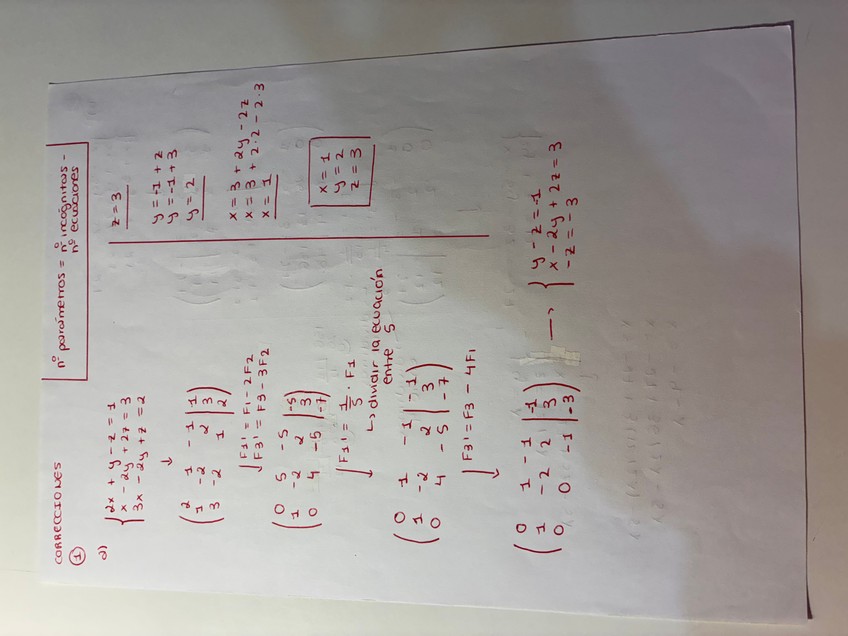 CORRECCIONES
nº parámetros = nº incógnitas -
nº ecuaciones
1
a)
{ 2x + y - z = 1
x - 2y + 2z = 3
3x - 2y + z = 2
↓
( 2 1 -1 | 1
1 -2 2 | 3
3 -2 1 | 2 )
F1' = F1 - 2F2
F3' = F3 - 3F2
( 0 5 -5 | -5
1 -2 2 | 3
0 4 -5 | -7 )
F1' = 1/5 · F1
↳ dividir la ecuación
entre 5
( 0 1 -1 | -1
1 -2 2 | 3
0 4 -5 | -7 )
F3' = F3 - 4F1
( 0 1 -1 | -1
1 -2 2 | 3
0 0 -1 | -3 )
→ { y - z = -1
x - 2y + 2z = 3
-z = -3
z = 3
y = -1 + z
y = -1 + 3
y = 2
x = 3 + 2y - 2z
x = 3 + 2·2 - 2·3
x = 1
x = 1
y = 2
z = 3